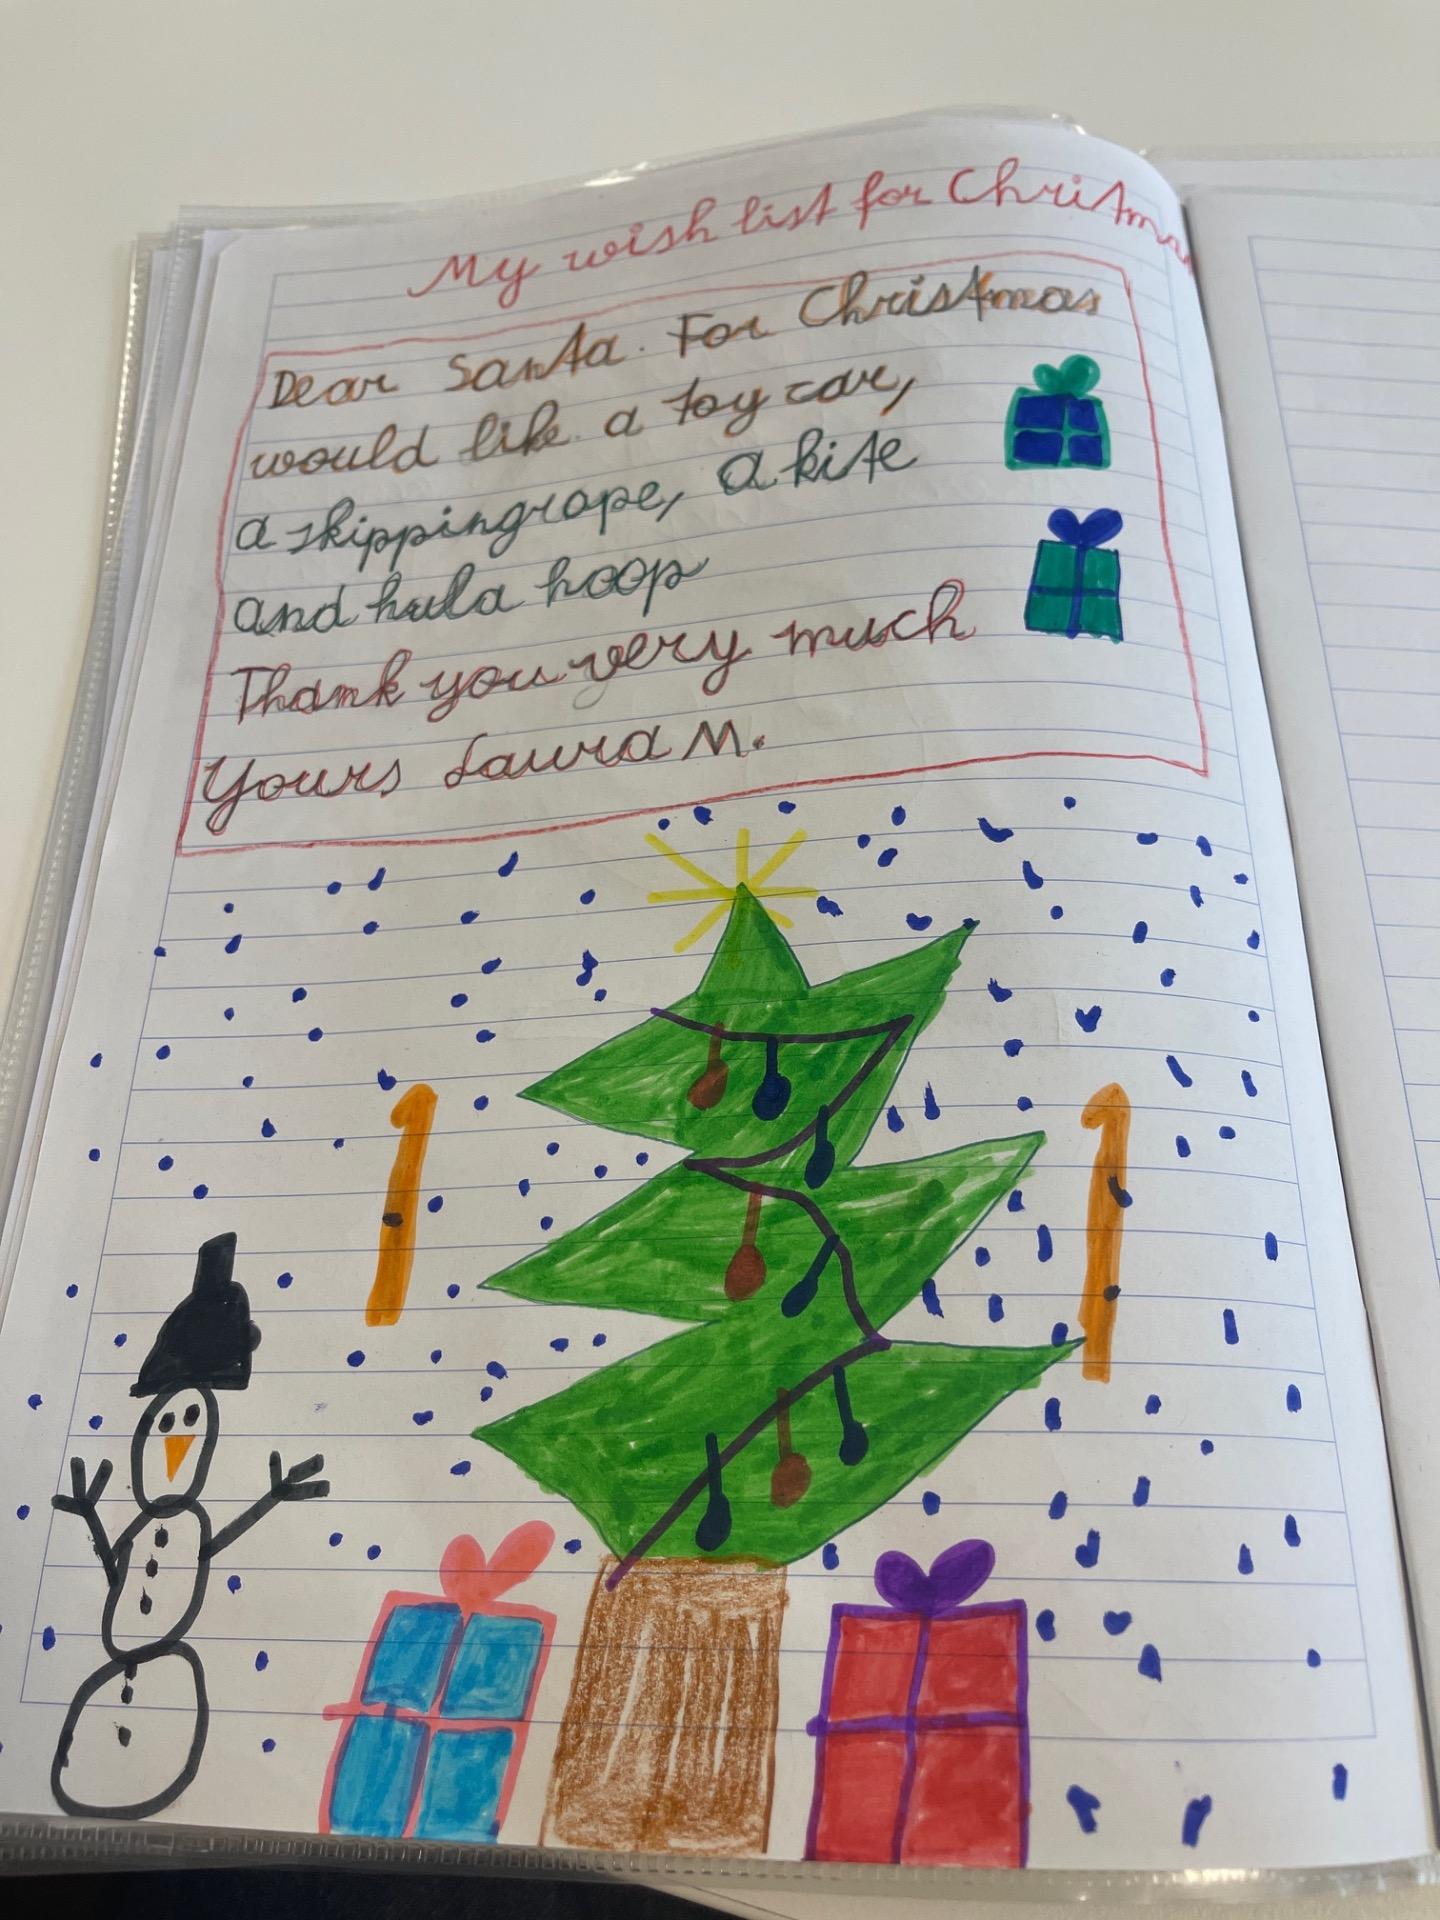 My wish list for Christmas
Dear Santa. For Christmas
would like a toy car,
a skippingrope, a kite
and hula hoop
Thank you very much
Yours Laura M.